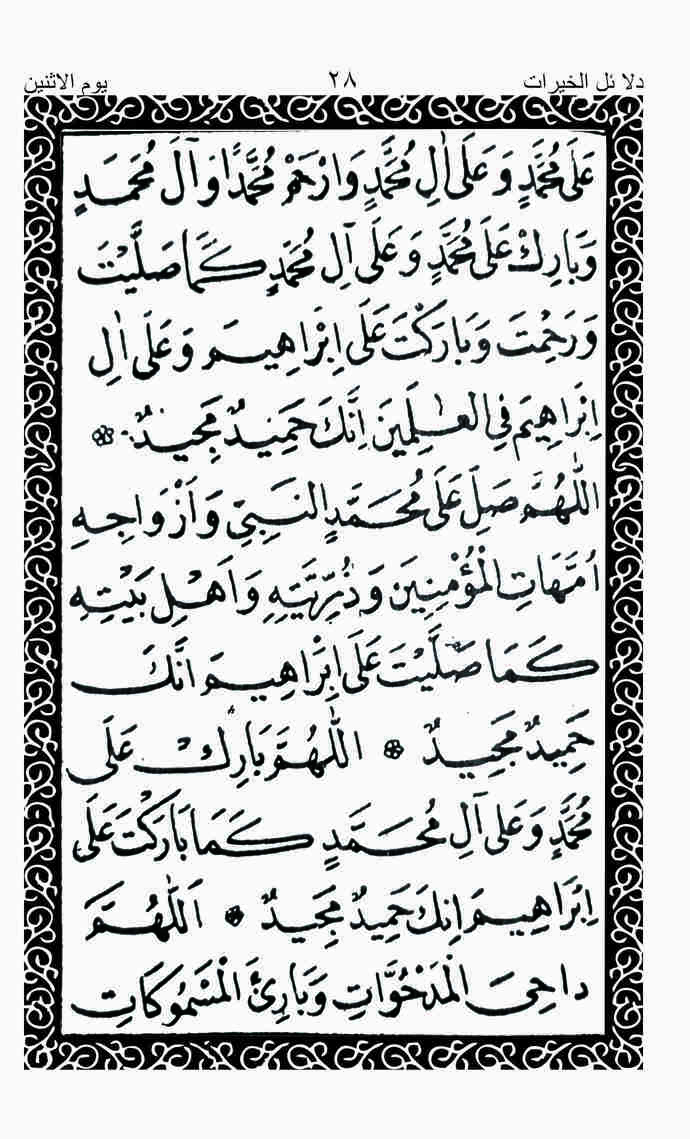 دلا ئل الخيرات ٢٨ يوم الاثنين
عَلَى مُحَمَّدٍ وَعَلَى اٰلِ مُحَمَّدٍ وَارْحَمْ مُحَمَّدًا وَآلَ مُحَمَدٍ
وَبَارِكْ عَلَى مُحَمَّدٍ وَعَلَى آلِ مُحَمَدٍ كَمَا صَلَّيْتَ
وَرَحِمْتَ وَبَارَكْتَ عَلَى اِبْرَاهِيمَ وَعَلَى اٰلِ
اِبْرَاهِيمَ فِى الْعٰلَمِينَ اِنَّكَ حَمِيدٌ مَجِيدٌ ۞
اللّٰهُمَّ صَلِّ عَلَى مُحَمَّدٍ النَبِىِّ وَاَزْوَاجِهِ
اُمَّهَاتِ الْمُؤْمِنِينَ وَذُرِّيَّتِهِ وَاَهْلِ بَيْتِهِ
كَمَا صَلَّيْتَ عَلَى اِبْرَاهِيمَ اِنَّكَ
حَمِيدٌ مَجِيدٌ ۞ اللّٰهُمَّ بَارِكْ عَلَى
مُحَمَّدٍ وَعَلَى آلِ مُحَمَّدٍ كَمَا بَارَكْتَ عَلَى
اِبْرَاهِيمَ اِنَّكَ حَمِيدٌ مَجِيدٌ ۞ اَللّٰهُمَّ
دَاحِىَ الْمَدْحُوَّاتِ وَبَارِئَ الْمَسْمُوكَاتِ